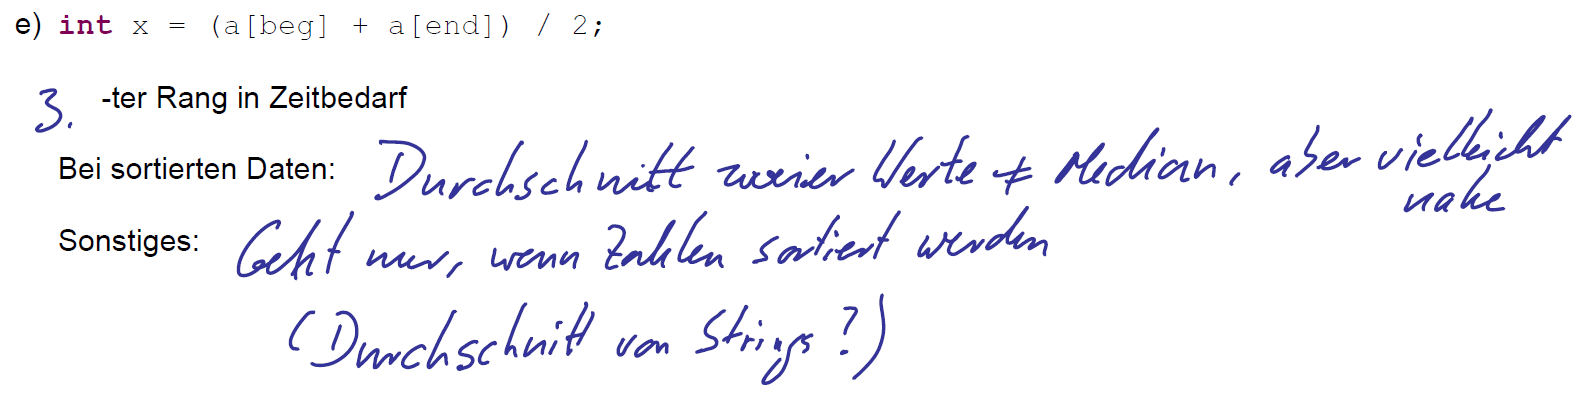 e) int x = (a[beg] + a[end]) / 2;
3. -ter Rang in Zeitbedarf
Bei sortierten Daten: Durchschnitt zweier Werte ≠ Median, aber vielleicht
nahe
Sonstiges: Geht nur, wenn Zahlen sortiert werden
(Durchschnitt von Strings?)